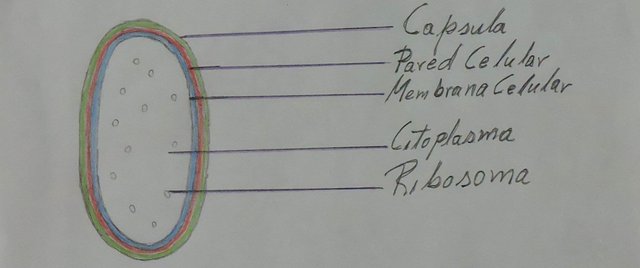 Capsula
Pared Celular
Membrana Celular
Citoplasma
Ribosoma